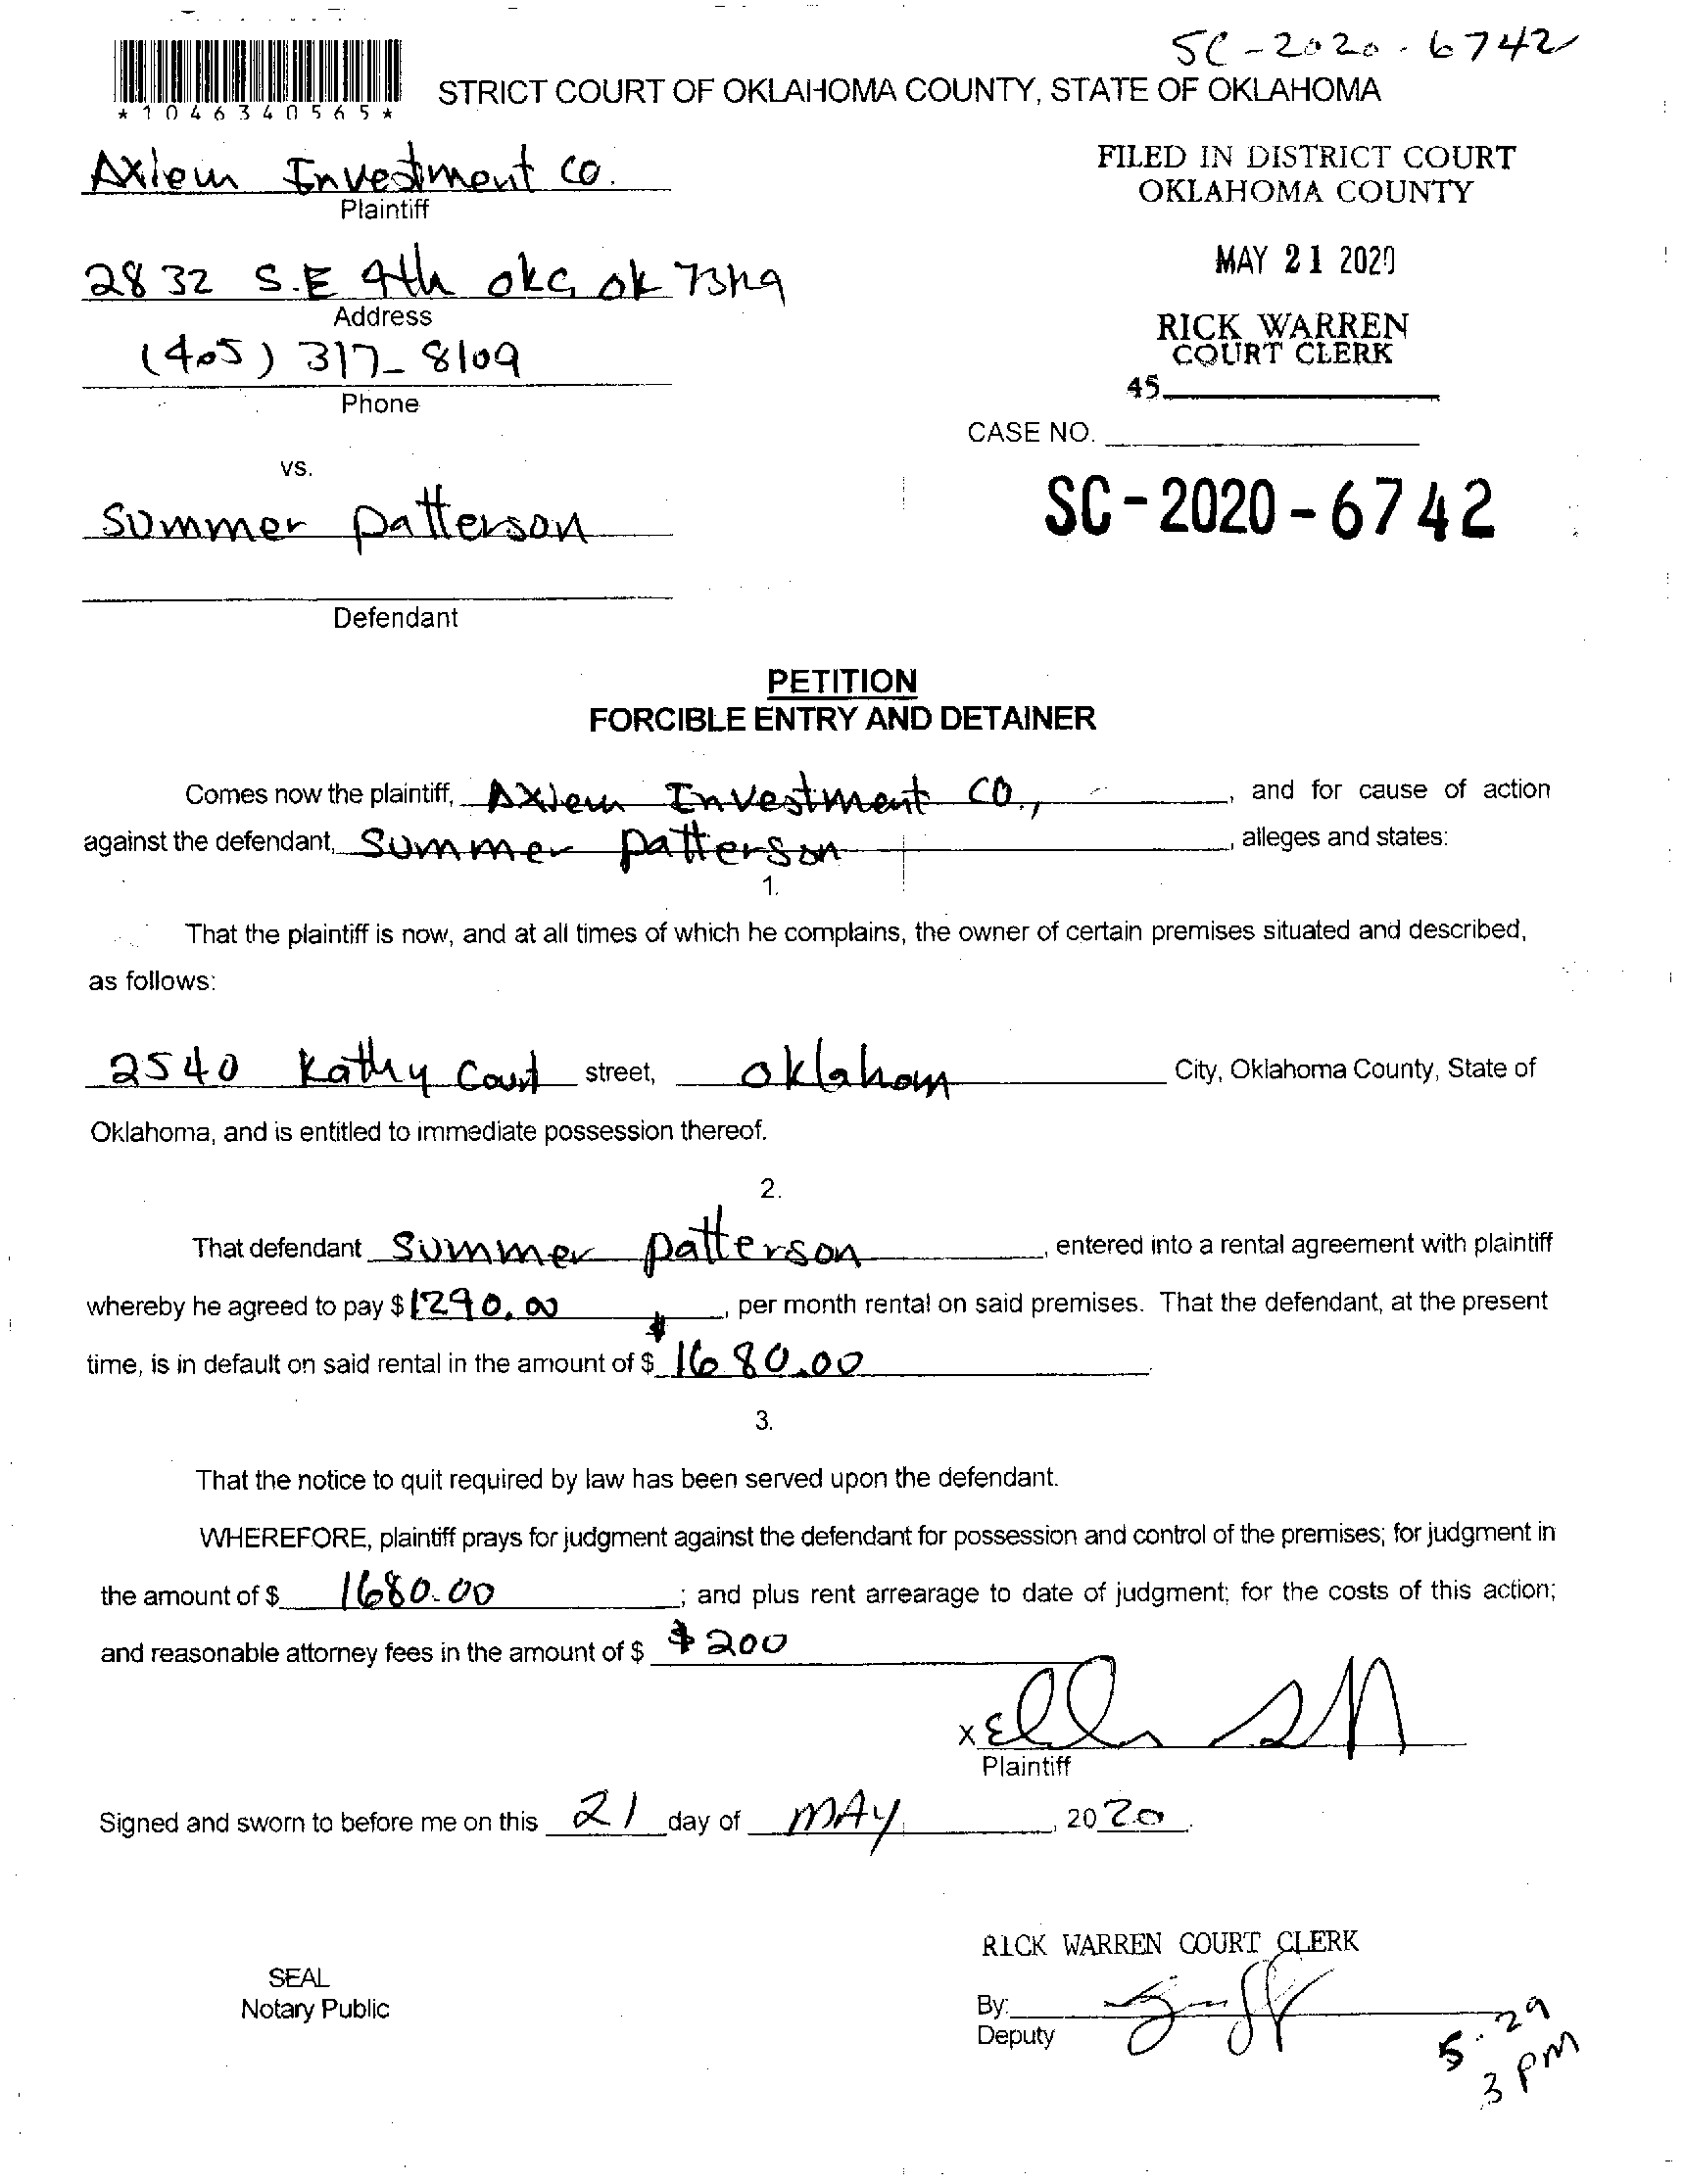 SC-2020-6742
*1046340565*
STRICT COURT OF OKLAHOMA COUNTY, STATE OF OKLAHOMA
Investment Co.
Plaintiff
FILED IN DISTRICT COURT
OKLAHOMA COUNTY
2832 S.E 4th okc ok
Address
MAY 21 2020
(405) 317-8109
Phone
RICK WARREN
COURT CLERK
45
CASE NO.
vs.
SC-2020-6742
Summer patterson
Defendant
PETITION
FORCIBLE ENTRY AND DETAINER
Comes now the plaintiff, Investment CO., and for cause of action
against the defendant, Summer patterson, alleges and states:
1.
That the plaintiff is now, and at all times of which he complains, the owner of certain premises situated and described,
as follows:
2540 Kathy Court street, oklahom City, Oklahoma County, State of
Oklahoma, and is entitled to immediate possession thereof.
2.
That defendant Summer patterson, entered into a rental agreement with plaintiff
whereby he agreed to pay $ 1290.00, per month rental on said premises. That the defendant, at the present
time, is in default on said rental in the amount of $ $1680.00.
3.
That the notice to quit required by law has been served upon the defendant.
WHEREFORE, plaintiff prays for judgment against the defendant for possession and control of the premises; for judgment in
the amount of $ 1680.00; and plus rent arrearage to date of judgment; for the costs of this action;
and reasonable attorney fees in the amount of $ $200
X
Plaintiff
Signed and sworn to before me on this 21 day of MAY, 2020.
RICK WARREN COURT CLERK
SEAL
Notary Public
By:
Deputy
5-29
3 PM